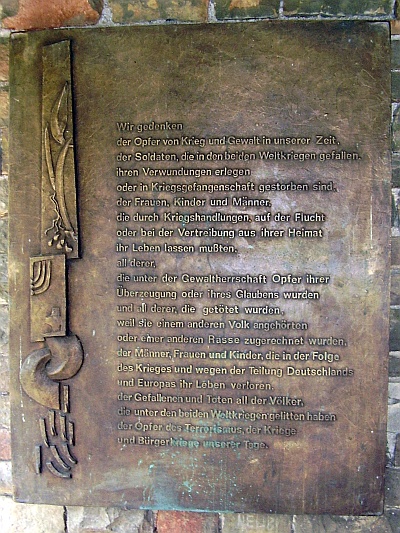 Wir gedenken
der Opfer von Krieg und Gewalt in unserer Zeit,
der Soldaten, die in den beiden Weltkriegen gefallen,
ihren Verwundungen erlegen
oder in Kriegsgefangenschaft gestorben sind,
der Frauen, Kinder und Männer,
die durch Kriegshandlungen, auf der Flucht
oder bei der Vertreibung aus ihrer Heimat
ihr Leben lassen mußten,
all derer,
die unter der Gewaltherrschaft Opfer ihrer
Überzeugung oder ihres Glaubens wurden
und all derer, die getötet wurden,
weil sie einem anderen Volk angehörten
oder einer anderen Rasse zugerechnet wurden,
der Männer, Frauen und Kinder, die in der Folge
des Krieges und wegen der Teilung Deutschlands
und Europas ihr Leben verloren,
der Gefallenen und Toten all der Völker,
die unter den beiden Weltkriegen gelitten haben
der Opfer des Terrorismus, der Kriege
und Bürgerkriege unserer Tage.